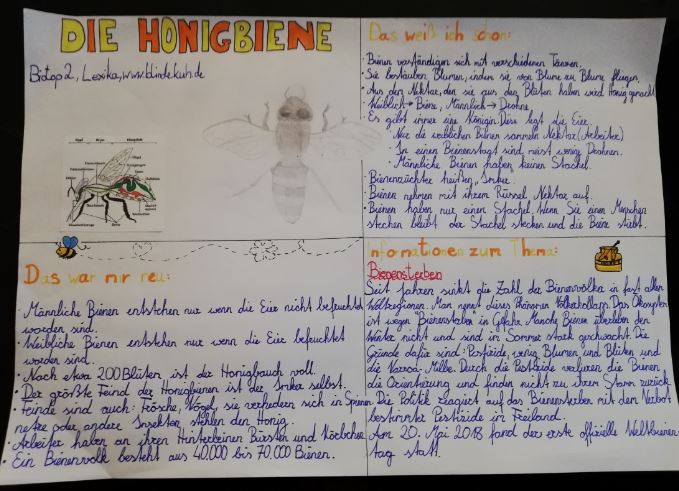 DIE HONIGBIENE
Biotop 2, Lexika, www.blindekuh.de
Das weiß ich schon:
• Bienen verständigen sich mit verschiedenen Tänzen.
• Sie bestäuben Blumen, indem sie von Blume zu Blume fliegen.
• Aus dem Nektar, den sie aus den Blüten haben wird Honig gemacht
• Weiblich → Biene, Männlich → Drohne
• Es gibt immer eine Königin. Diese legt die Eier.
• Nur die weiblichen Bienen sammeln Nektar (Arbeiter)
• In einem Bienenstaat sind meist wenig Drohnen.
• Männliche Bienen haben keinen Stachel.
• Bienenzüchter heißen Imker.
• Bienen nehmen mit ihrem Rüssel Nektar auf.
• Bienen haben nur einen Stachel. Wenn Sie einen Menschen
stechen bleibt der Stachel stecken und die Biene stirbt.
Das war mir neu:
• Männliche Bienen entstehen nur wenn die Eier nicht befruchtet
worden sind.
• Weibliche Bienen entstehen nur wenn die Eier befruchtet
worden sind.
• Nach etwa 200 Blüten ist der Honigbauch voll.
• Der größte Feind der Honigbienen ist der Imker selbst.
• Feinde sind auch: Frösche, Vögel, sie verheddern sich in Spinnen
netze oder andere Insekten stehlen den Honig.
• Arbeiter haben an ihren Hinterbeinen Bürsten und Körbchen
• Ein Bienenvolk besteht aus 40.000 bis 70.000 Bienen.
Informationen zum Thema:
Bienensterben
Seit Jahren sinkt die Zahl der Bienenvölker in fast allen
Weltregionen. Man nennt dieses Phänomen Völkerkollaps. Das Ökosystem
ist wegen "Bienensterben" in Gefahr. Manche Bienen überleben den
Winter nicht und sind im Sommer stark geschwächt. Die
Gründe dafür sind: Pestizide, wenig Blumen und Blüten und
die Varroa-Milbe. Durch die Pestizide verlieren die Bienen
die Orientierung und finden nicht zu ihrem Stamm zurück
Die Politik reagiert auf das Bienensterben mit dem Verbot
bestimmte Pestizide im Freiland.
Am 20. Mai 2018 fand der erste offizielle Weltbienen-
tag statt.